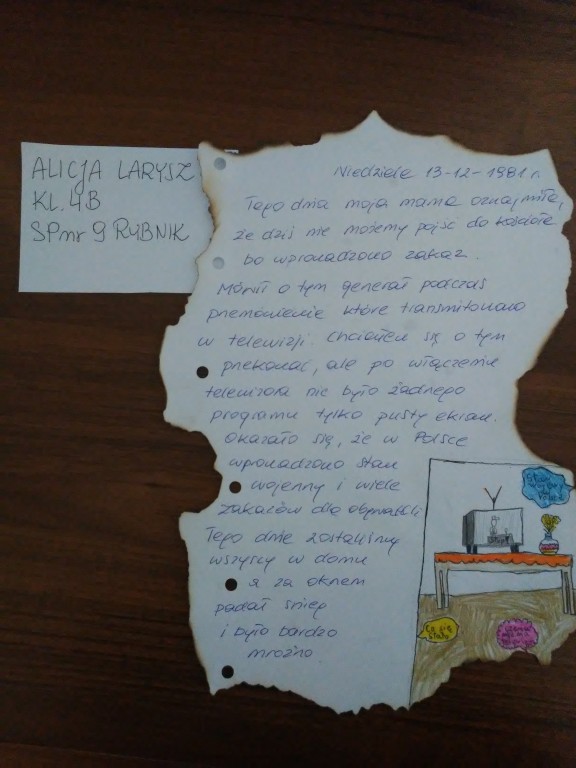 ALICJA LARYSZ
KL. 4B
SP nr 9 RYBNIK
Niedziela 13-12-1981 r.
Tego dnia moja mama oznajmiła,
że dziś nie możemy pójść do kościoła
bo wprowadzono zakaz.
Mówił o tym generał podczas
przemówienia które transmitowano
w telewizji chciałem się o tym
przekonać, ale po włączeniu
telewizora nie było żadnego
programu tylko pusty ekran.
Okazało się, że w Polsce
wprowadzono stan
wojenny i wiele
zakazów dla obywateli
Tego dnia zostaliśmy
wszyscy w domu
a za oknem
padał śnieg
i było bardzo
mroźno.
Co się
stało